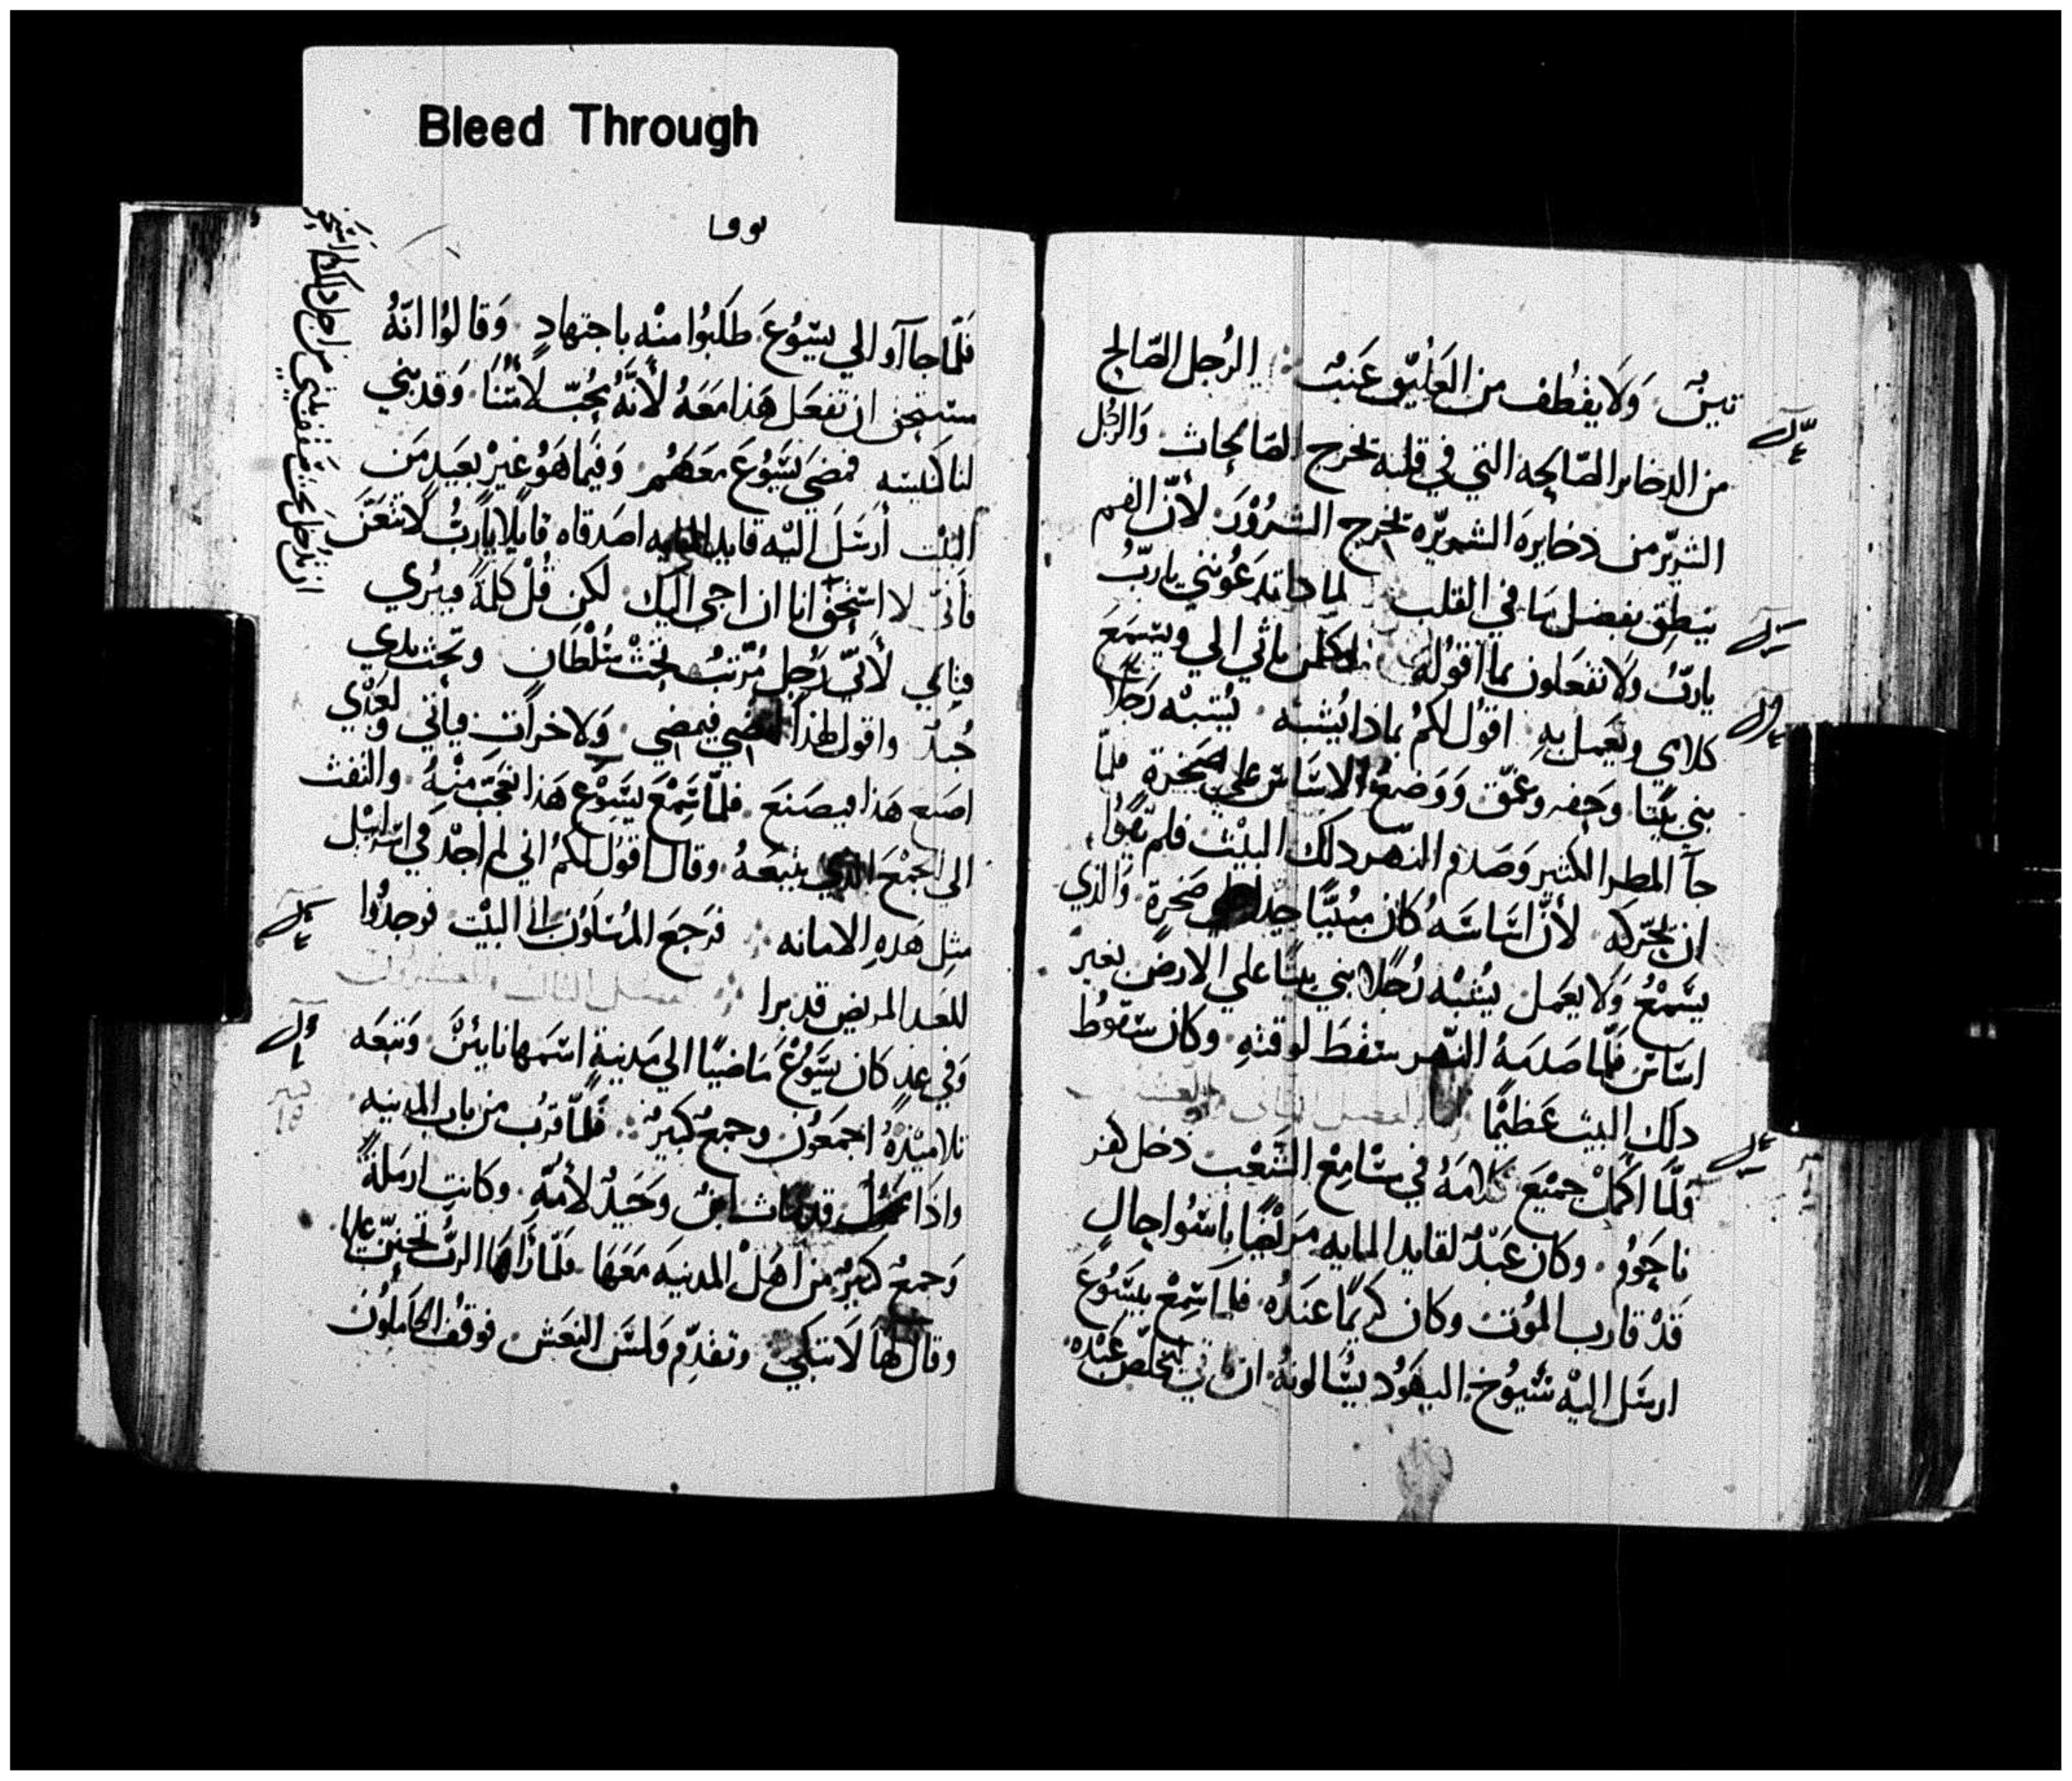 Bleed Through
لوقا
تينٌ وَلَا يقطف من العَلَيّق عَنبٌ الرُجل الصّالح
من الدخاير الصّالحه التي في قلبه يخرج الصّالحات وَالرجُل
الشريّر من دخايره الشريّره يخرج الشرُوُرَ لأنّ الفم
ينطِق بفضل ما في القلب لمادا تدعُونني ياربُّ
ياربُّ وَلَا تفعَلون بما اقوُله كلمن ياتي الي ويسَمعَ
كلامي ويَعمل بهِ اقوُل لكمُ بماذا يُشبه يُشبهْ رَجلًا
بني بَيتًا وحَفر وعمّق وَوَضعَ الاسَاسَ علي صَخرة فلمّا
جآ المطر الكثير وَصَدم النهر دلك البيْت فلم تقوُا
ان يحّركه لأنّ اسَاسَهُ كان مبنيًّا جيّدا علي صَخرةٍ وَالذي
يسَّمعُ وَلا يعمل يُشبْه رَجُلًا بني بيتًا علي الارضِ بغير
اسَاسٍ فلّما صَدَمَهُ النهر سقَطَ لوقتهِ وكان سقوُط
دلك البيت عَظيْمًا
فلّمَا اكملْ جميْعَ كلامَهُ في مسَامِعْ الشَعْب دخل كفر
ناحَوُم وكان عَبْدٌ لقايد المايه مَريْضًا باسْوُا حالٍ
قَدْ قارب المُوت وكان كريمًا عندُه فلما سَمِعْ بيسَوُعَ
ارسَل اليْهِ شيوُخ اليهوُد يسَالونهُ ان ياتي يخلّص عَبْده
فلّما جاآوا الي يسُوُعَ طلبُوا منْه باجتهادٍ وَقالوُا انّهُ
مستحق ان تفعَل هَذا مَعَهُ لأنَّهُ يحُبّ لأمتّنَا وَقد بني
لنا كنيسَه فمضي يسَوُعَ معَهُمُ وَفيْما هَوُ غيْر بعَيدٍ من
البيْت أرسَلَ اليْه قايد المايه اصَدقاه قايلًا ياربُّ لاتتعَنَّ
فأنّي لا استحقّ انا ان اجي اليك لكن قُلْ كلِمةً فيبْري
فتايَ لأنّي رَجل مُرّتبٌ تحتْ سُلْطان وتحْت يدي
جُندٌ واقول لهذا امْضي فيمضي وَلاخر اْتِ فياتي ولعَبْدي
اصنع هَذا فيصنَعَ فلمّا سَّمِعْ يسَّوُعَ هَذا تعَجّب منْهُ والتفت
الي الجمْعَ الذي يتبعَهُ وقال اقول لكمُ اني لم اجدْ في اسَراييْل
مثِل هَدهِ الامانه فرَجَعَ المُرسَلوُن الي البيْت فوجدُوا
للعَبد المريض قد برا
وَفي غدٍ كان يسَّوُعُ مَاضيًا الي مَدينةٍ اسمَها نايئنَّ وَتبعَه
تلاميْذهُ اجمعُون وجمعٌ كبيْرٌ فلّما قرُب من باب المدينه
واذا محموُل قد مات ابنٌ وَحَيدٌ لأمهّ وكانت ارمَلةً
وَجمعٌ كبيْر من اهَلْ المدينَه مَعَهَا فلّما رَأهَا الربُّ تحننّ عليها
وقال لها لَا تبكي وتقدّم وَلمسَّ النعَشَ فوَقفَ الحامَلوُن